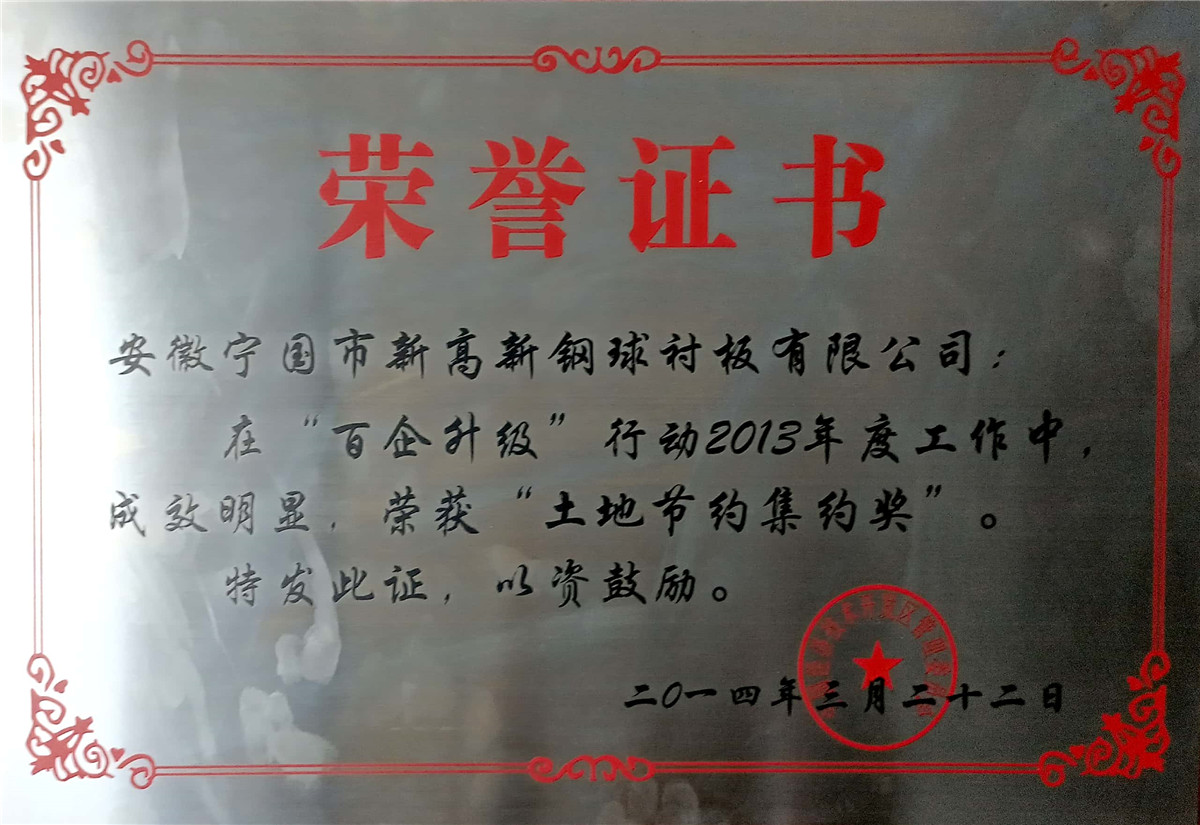 荣誉证书
安徽宁国市新高新钢球衬板有限公司：
在“百企升级”行动2013年度工作中，
成效明显，荣获“土地节约集约奖”。
特发此证，以资鼓励。
二0一四年三月二十二日